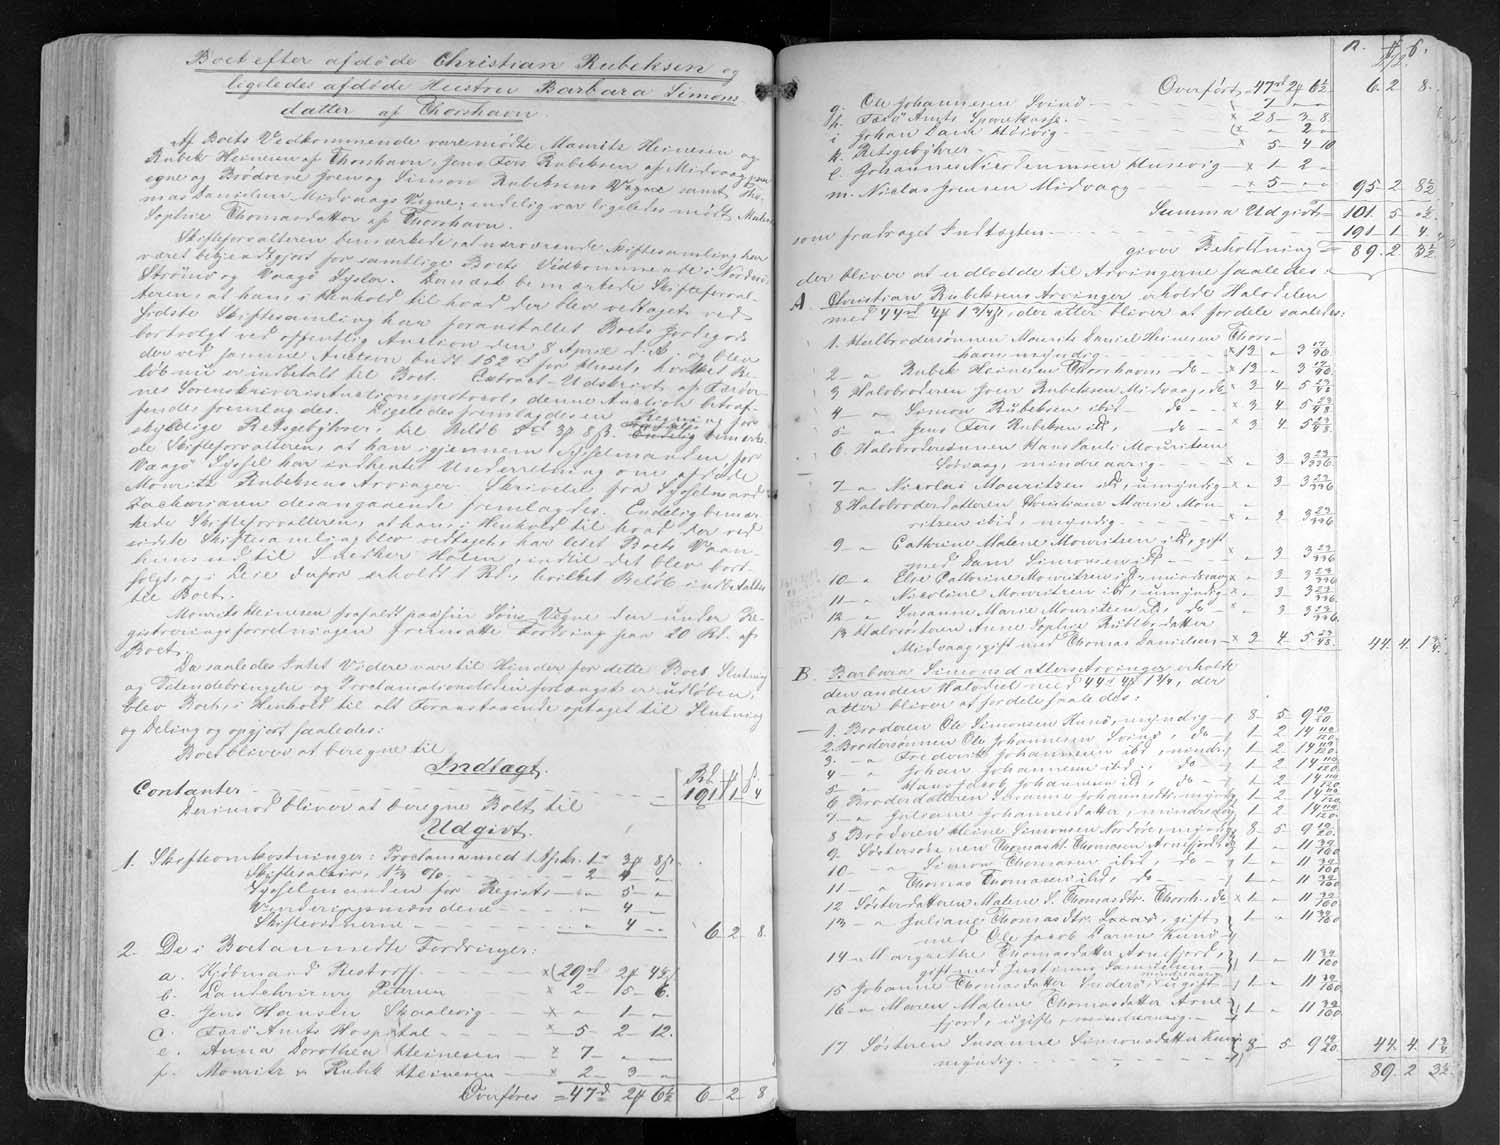 Boet efter afdøde Christian Rubeksen og
ligeledes afdøde Hustru Barbara Simons
datter af Thorshavn.
Af Boets Vedkommende varemødte Mauritz Heinesen og
Rubek Heinesen af Thorshavn, Jens Fors Rubeksen af Midvaag paa
egne og Brødrene Joen og Simon Rubeksens Vegne samt Tho-
mas Danielsen Midvaags Vegne; endelig var ligeledes mødt Malene
Sophie Thomasdatter af Thorshavn.
Skifteforvalteren bemærkede, at nærværende Skiftesamling har
været bekjendtgjort for samtlige Boets Vedkommende i Norderø
Strømø og Vaagø Syslor. Dernæst bemærkede Skifteforval-
teren, at han i Henhold til hvad der blev vedtaget ved
sidste Skiftesamling har foranstaltet Boets Jordegods
bortsolgt ved offentlig Auction den 8 April d. A., og blev
der ved samme Auction budt 152 rd for Huset, hvilket Be-
løb nu er indbetalt til Boet. Extract-Udskrivt af Færø-
ernes Sorenskriveriauctionsprotocol, denne Auction betræf-
fende fremlagdes. Ligeledes fremlagdes en Regning for
skyldige Retsgebyhrer til Beløb 5 rd 3 ₰ 8 ß. Endelig bemærke-
de Skifteforvalteren, at han igjennem Sysselmanden for
Vaagø Syssel har indhentet Underretning om afdøde
Mouritz Rubeksens Arvinger. Skrivelse fra Sysselmand
Zachariasen desangaaende fremlagdes. Endelig bemær-
kede Skifteforvalteren, at han, i Henhold til hvad der ved
sidste Skiftesamling blev vedtaget, har leiet Boets Vaan-
huus ud til Snedker Holm, indtil det blev bort-
solgt, og i Leie derfor erholdt 1 Rd., hvilket Beløb indbetaltes
til Boet.
Mourits Heinesen frafaldt paa sin Søns Vegne den under Re-
gistreringsforretningen fremsatte Fordring paa 20 Rd. af
Boet.
Da saaledes Intet Videre var til Hinder for dette Boets Slutning
og Tilendebringelse og Proclamationstiden forlængst er udløben,
blev Boet, i Henhold til alt Foranstaaende optaget til Slutning
og Deling og opgjort saaledes:
Boet bliver at beregne til
Indtægt.
Rd. ₰ ß.
Contanter - - - 191 1 4
Derimod bliver at beregne Boet til
Udgivt.
1. Skifteomkostninger: Proclama med 1 Aftr. 1 - 3 ₰ 8 ß.
Skiftesalair, 1⅔ % - - 2 - 4 -
Sysselmanden for Registr. - - 5 -
Vurderingsmændene - - - 4 -
Skiftevidnerne - - - 4 - 6 2 8.
2. De i Boet anmeldte Fordringer:
a. Kjøbmand Restorff - - x (29 rd 2 ₰ 4½ ß)
b. Landchirurg Petersen - x 2 - 5 - 6.
c. Jens Hansen Skaalevig - x - 1 - -
d. Færø Amts Hospital - x 5 - 2 - 12.
e. Anna Dorothea Heinesen - x 7 - - -
f. Mouritz & Rubek Heinesen - x 2 - 3 - -
Overføres = 47 rd 2 ₰ 6½ 6 - 2 - 8
R. ₰ ß.
Overført 47 rd 2 ₰ 6½ 6. 2. 8.
g. Ole Johannesen Svinø - - 7 - -
h. Færø Amts Sparekasse. - x 28 - 3 - 8.
i Johan Dam Heivig - - (x - 2 -
k. Retsgebyhrer - - x 5 4 10
l. Johannes Nicodemusen Husevig - x 1 2 -
m. Niclas Joensen Midvaag - x 5 - - 95 - 2 - 8½
Summa Udgivt = 101. 5 - ½
som fradraget Indtægten - - 191 1 4.
giver Beholdning = 89. 2. 3½
der bliver at udlodde til Arvingerne saaledes:
A. Christian Rubeksens Arvinger erholde Halvdelen
med 44 rd 4 ₰ 1¾ ß, der atter bliver at fordele saaledes:
1. Helbrodersønnen Mourits Daniel Heinesen Thors-
havn, myndig - - x 13 - 3 17/96
2 - " Rubek Heinesen Thorshavn, do - x 13 - 3 17/96
3 Halvbroderen Joen Rubeksen Midvaag, do x 3 4 5 23/48
4 - " Simon Rubeksen ibid - do - - x 3 - 4. 5 23/48
5 - " Jens Fors Rubeksen ibd, - do - - x 3 4 5 23/48
6 Halvbrodersønnen Hans Pauli Mouritsen
Sørvaag, mindreaarig - - x " 3 3 23/336
7 - " Nicolai Mouritzen ibd, umyndig - x - 3 - 3 23/336
8 Halvbroderdatteren Christiane Marie Mou-
ritzen ibid, myndig - - x - 3 3 23/336
9 - " Cathrine Malene Mouritzen ibd, gift
med Dam Simonsen ibd - x - 3 3 23/336
10 - " Else Cathrine Mouritzen ibd, mindreaarig x - 3 - 3 23/336
11 - " Nicoline Mouritzen ibd, umyndig - x - 3 - 3 23/336
12 - " Susanne Marie Mouritzen ibd, do - x - 3 - 3 23/336
13 Halvsøsteren Anne Sophie Rubeksdatter
Midvaag, gift med Thomas Danielsen - x 3 4 5 23/48. 44. 4. 1¾.
B. Barbara Simonsdatters Arvinger erholde
den anden Halvdeel med 44 rd 4 ₰ 1¾, der
atter bliver at fordele saaledes:
1. Broderen Ole Simonsen Kunø, myndig - 8 - 5 - 9 19/20
2. Brodersønnen Ole Johannesen Svinø, do - 1 - 2 - 14 119/120
3. - " Frederik Johannesen ibd, myndig 1 - 2 14 119/120
4 - " Johan Johannesen ibd., do - 1 - 2 14 119/120
5 - " Hans Jacob Johannesen ibd, do - 1 - 2 14 119/120
6 Broderdatteren Susanne Johannesdtr, myndig 1 - 2 14 119/120
7 - " Juliane Johannesdatter, mindreaarig 1 - 2 14 119/120
8 Broderen Heine Simonsen Nordøre, myndig 8 - 5 9 19/20.
9. Søstersønnen Thomas Kl. Thomasen Arnefjord, do 1 - " 11 39/160
10 - " Simon Thomasen ibd, do - 1 - " 11 39/160
11 - " Thomas Thomasen ibd, do - 1 - " 11 39/160
12 Søsterdatteren Malene S. Thomasdtr. Thorsh, do x 1 - " 11 39/160
13 - " Juliane Thomasdtr. , gift
med Ole Jacob Larsen Kunø - 1 - " 11 39/160
14 - " Margrethe Thomasdatter Arnefjord,
gift med Justinus Samuelsen - 1 - " 11 39/160
15 Johanne Thomasdatter Viderø, ugift mindreaarig - 1 - " 11 39/160
16 - " Maren Malene Thomasdatter Arne-
fjord, ugift, mindreaarig - - 1 - " 11 39/160
17 Søsteren Susanne Simonsdatter Kunø
myndig - - 8 - 5 9 19/20. 44. 4. 1¾.
89. 2 3½